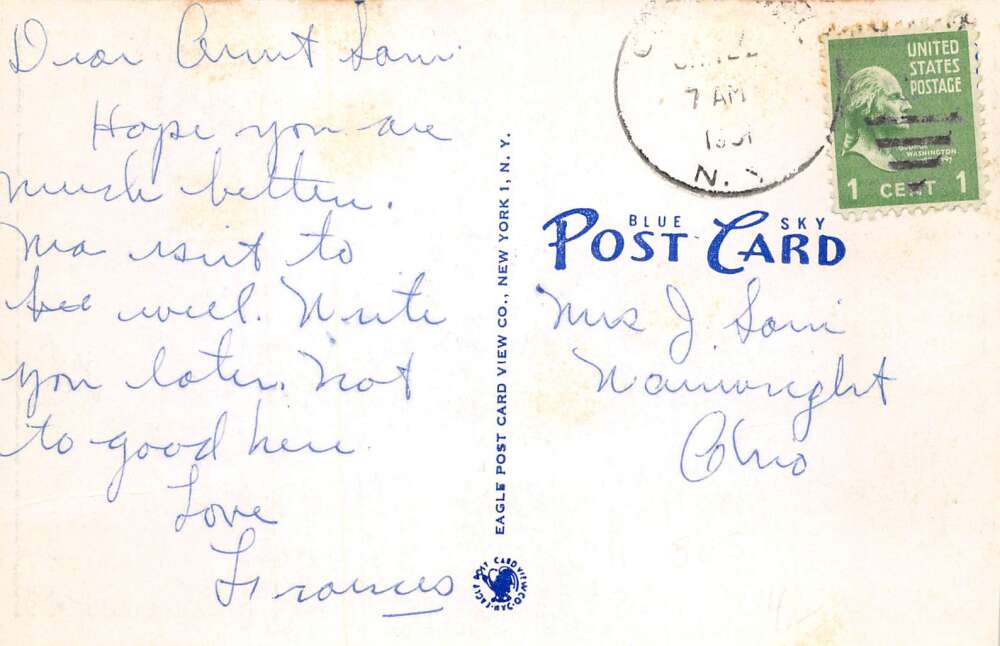 Dear Aunt Sam.
Hope you are
much better.
Ma isnt to
well. Write
you later. Not
to good here.
Love
Frances
EAGLE POST CARD VIEW CO., NEW YORK 1, N. Y.
EAGLE POST CARD VIEW CO.
7 AM
1951
N. Y.
UNITED
STATES
POSTAGE
GEORGE
WASHINGTON
1 CENT 1
BLUE SKY
POST CARD
Mrs J. Sam
Wainwright
Ohio